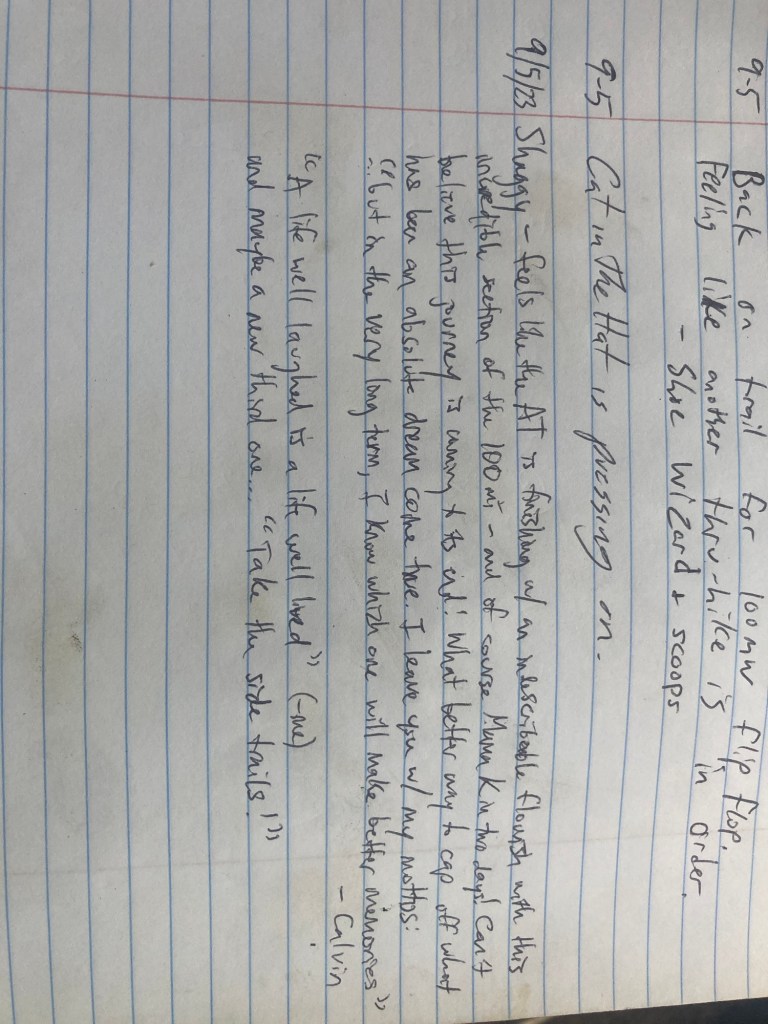 9-5 Back on trail for 100mw flip flop.
Feeling like another thru-hike is in order.
- Shoe Wizard + scoops
9-5 Cat in The Hat is pressing on.
9/5/23 Shaggy - feels like the AT is finishing w/ an indescribable flourish with this
incredible section of the 100 mi - and of course Mama K in two days! Can't
believe this journey is coming to its end! What better way to cap off what
has been an absolute dream come true. I leave you w/ my mottos:
"... but in the very long term, I know which one will make better memories"
- Calvin
"A life well laughed is a life well lived" (-me)
and maybe a new third one... "Take the side trails!"